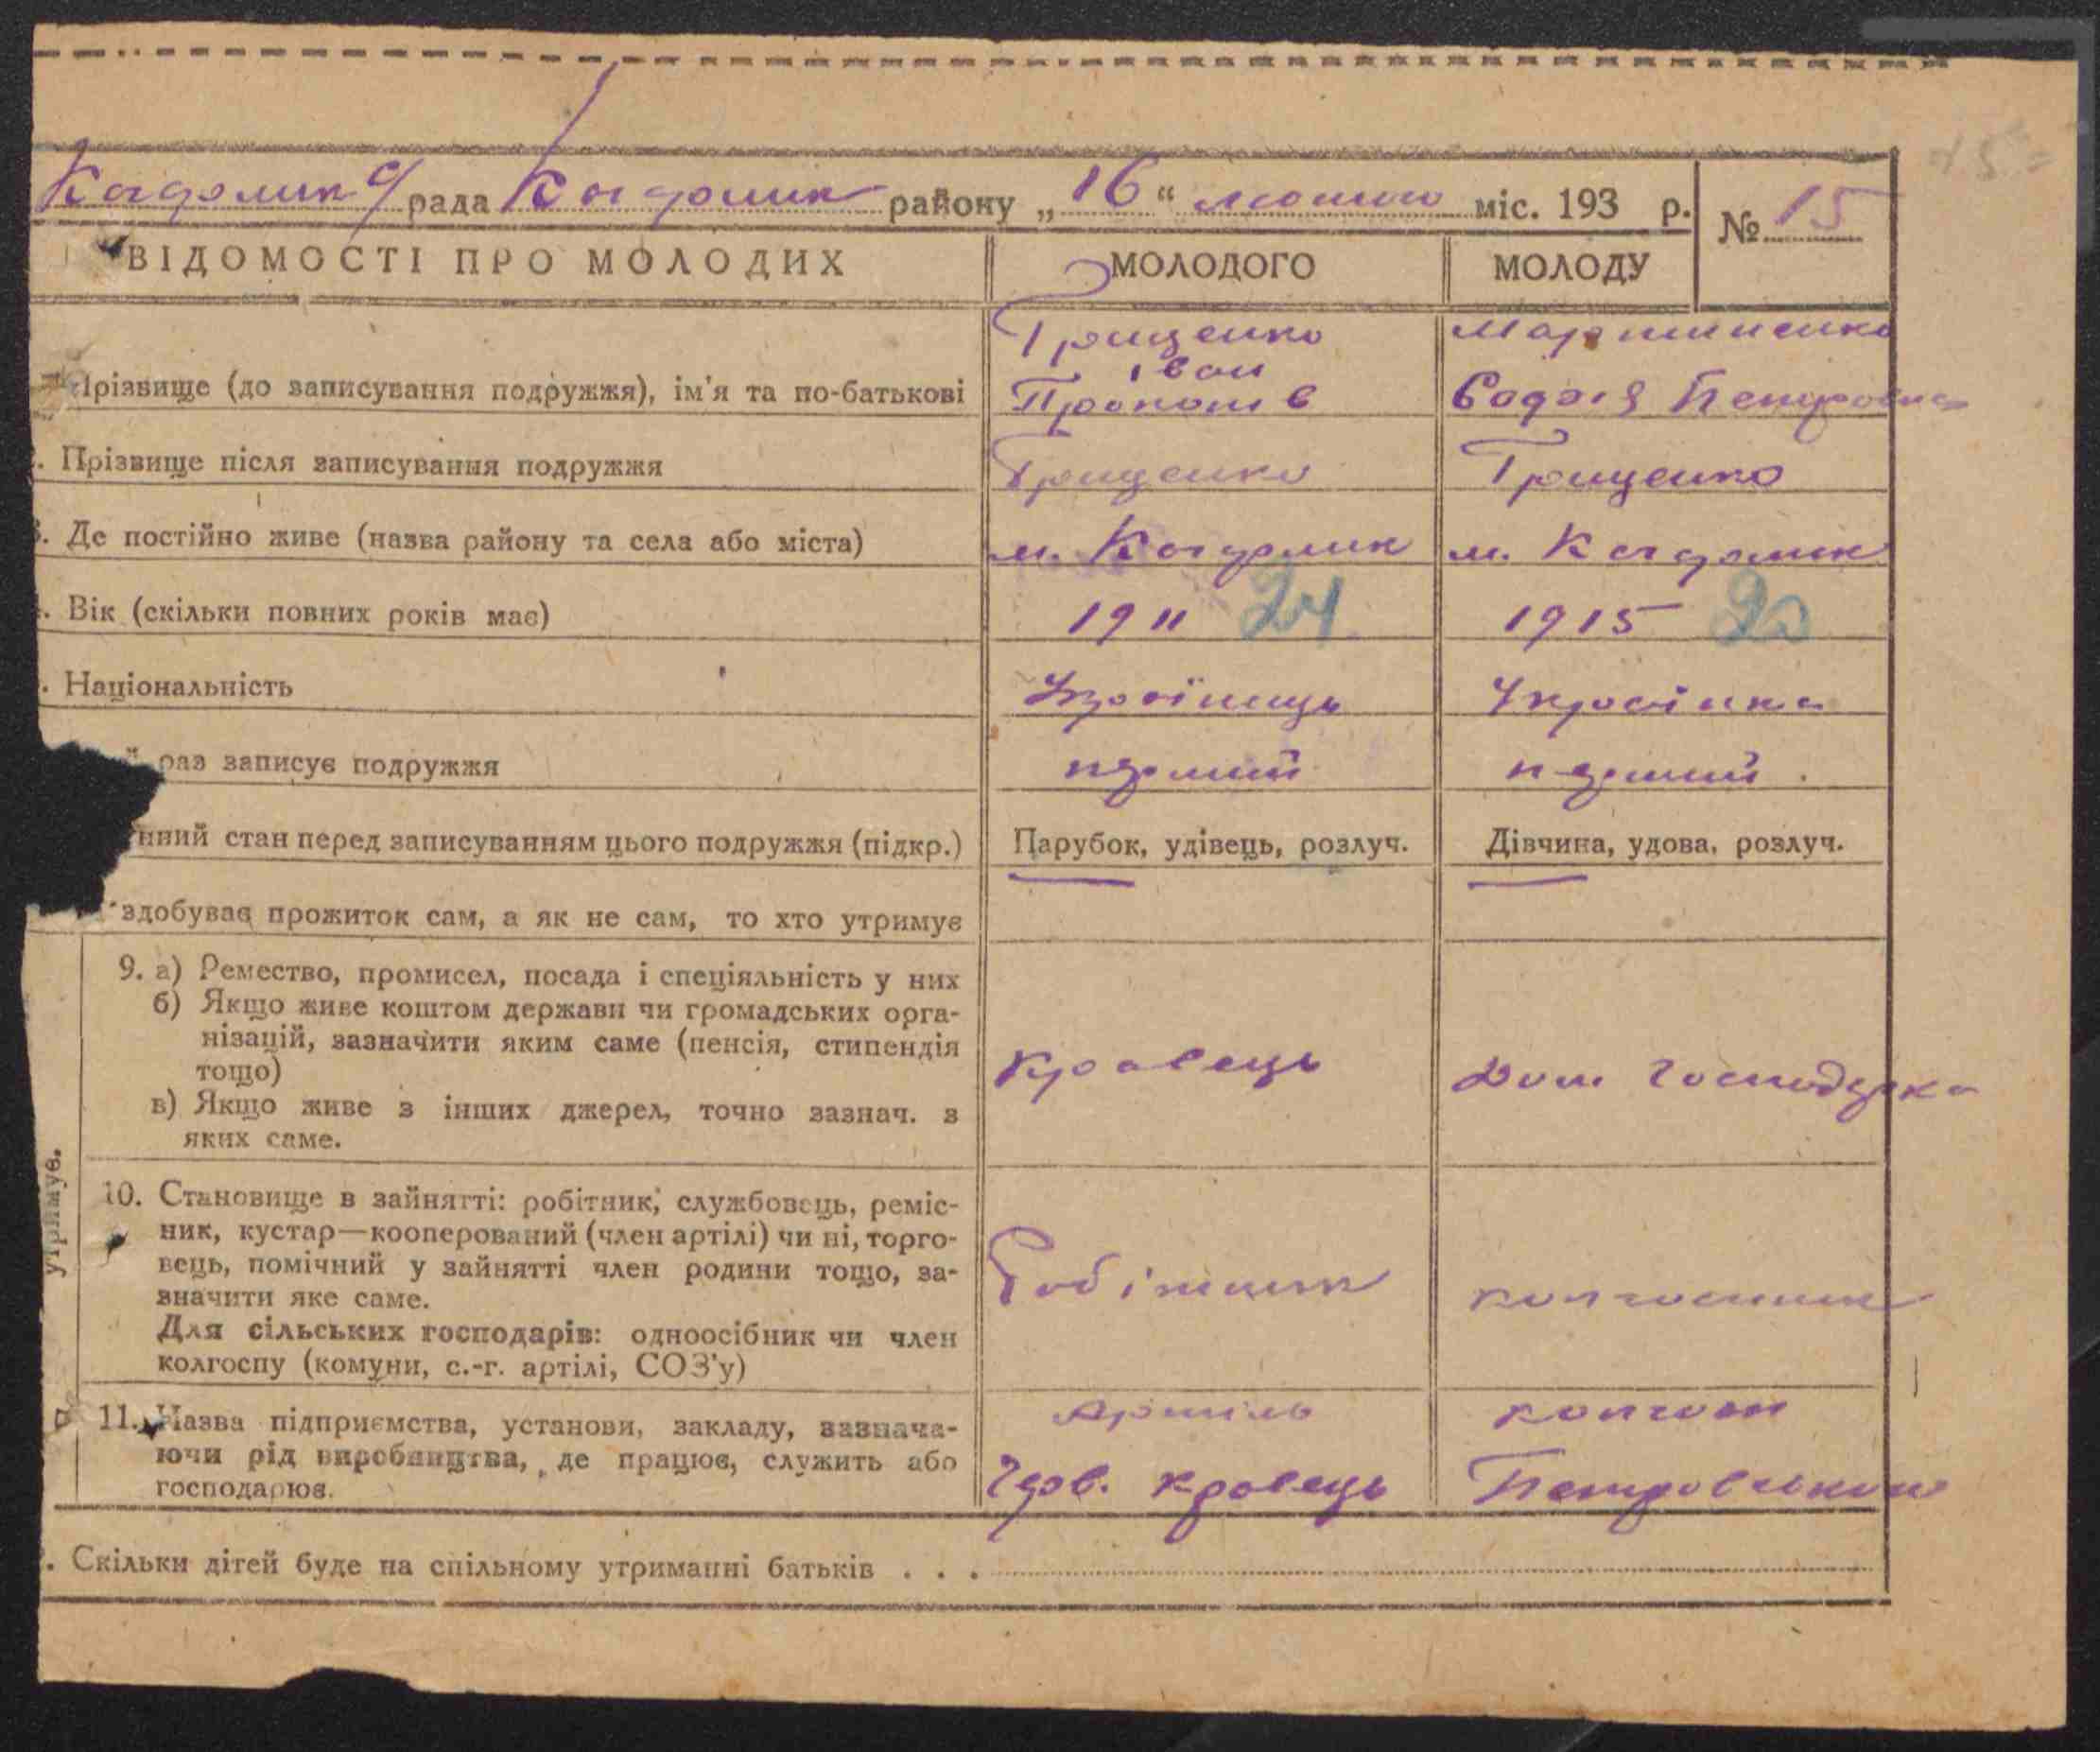 Кагарлик с/рада Кагарлик району „16“ лютого міс. 193 р. № 15
ВІДОМОСТІ ПРО МОЛОДИХ МОЛОДОГО МОЛОДУ
Прізвище (до записування подружжя), ім'я та по-батькові Грищенко Іван Прокопів Мартиненко Петровна
. Прізвище після записування подружжя Грищенко Грищенко
3. Де постійно живе (назва району та села або міста) м. Кагарлик м. Кагарлик
. Вік (скільки повних років має) 1911 24 1915 20
. Національність Українець Українка
й раз записує подружжя перший перший .
нний стан перед записуванням цього подружжя (підкр.) Парубок, удівець, розлуч. Дівчина, удова, розлуч.
здобуває прожиток сам, а як не сам, то хто утримує
утримує.
9. а) Ремество, промисел, посада і спеціяльність у них
б) Якщо живе коштом держави чи громадських орга-
нізацій, зазначити яким саме (пенсія, стипендія
тощо)
в) Якщо живе з інших джерел, точно зазнач. з
яких саме.
кравець Дом господарка
10. Становище в зайнятті: робітник, службовець, реміс-
ник, кустар—кооперований (член артілі) чи ні, торго-
вець, помічний у зайнятті член родини тощо, за-
значити яке саме.
Для сільських господарів: одноосібник чи член
колгоспу (комуни, с.-г. артілі, СОЗ'у)
Робітник колгоспник
11. Назва підприємства, установи, закладу, зазнача-
ючи рід виробництва, де працює, служить або
господарює.
Артіль колгосп
Черв. кравець Петровського
. Скільки дітей буде на спільному утриманні батьків . . .